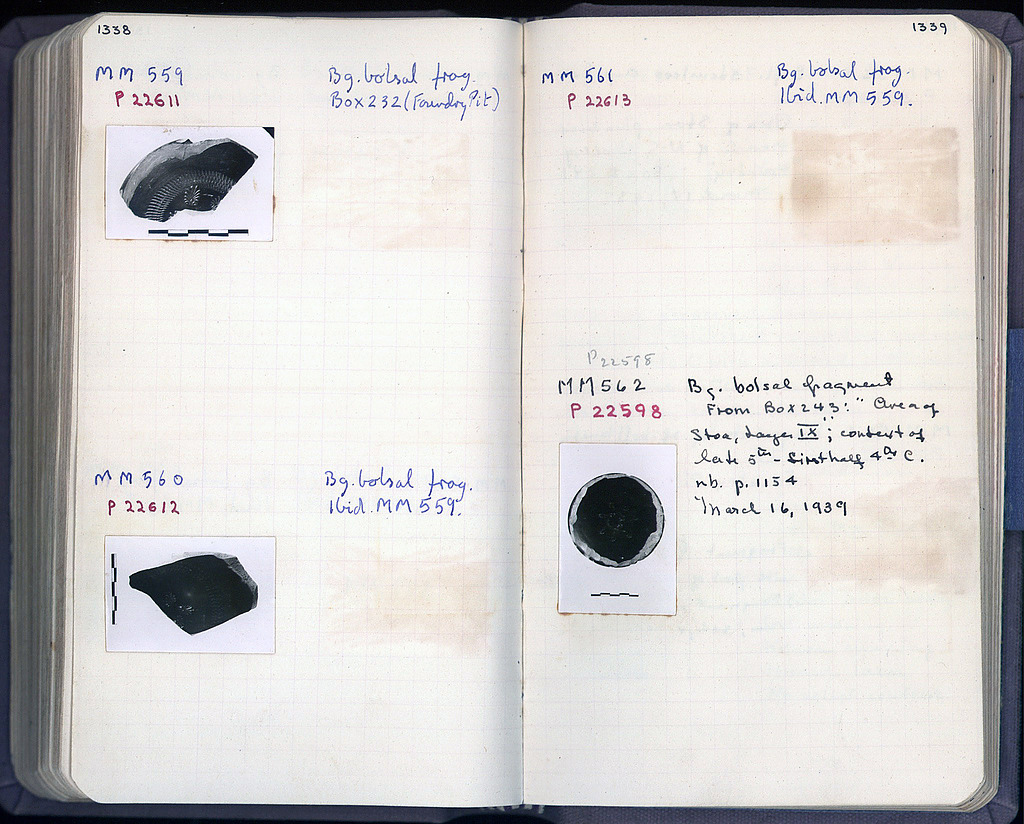 1338
MM 559
P 22611
Bg. bolsal frag.
Box 232 (Foundry Pit)
MM 560
P 22612
Bg. bolsal frag.
Ibid. MM 559.
1339
MM 561
P 22613
Bg. bolsal frag.
Ibid. MM 559.
P 22598
MM 562
P 22598
Bg. bolsal fragment
From Box 243: "Area of
Stoa, Layer IX"; context of
late 5th - first half 4th C.
nb. p. 1154
March 16, 1939